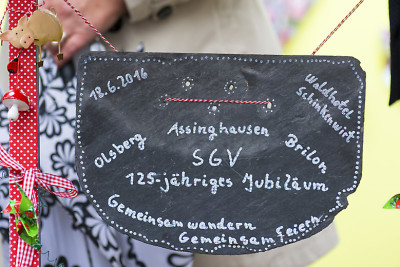 18.6.2016
Waldhotel
Schinkenwirt
Assinghausen
Olsberg
SGV
Brilon
125-jähriges Jubiläum
Gemeinsam wandern
Gemeinsam feiern